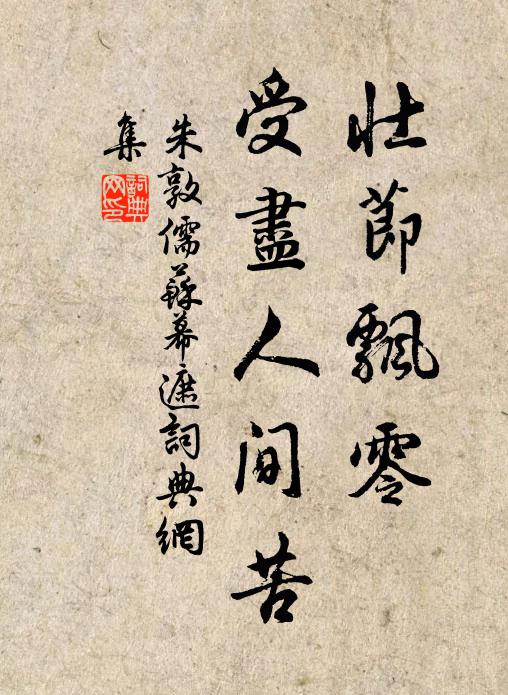 壯節飄零
受盡人間苦
朱敦儒蘇幕遮詞典網
集
詞典网印